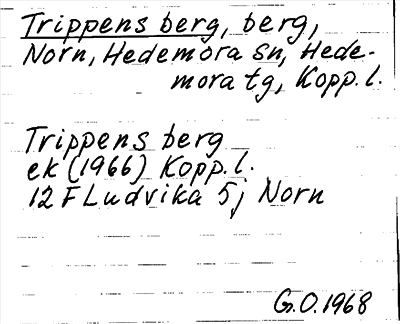 Trippens berg, berg,
Norn, Hedemora sn, Hede-
mora tg, Kopp. l.
Trippens berg
ek (1966) Kopp. l.
12 F Ludvika 5j Norn
G.O. 1968